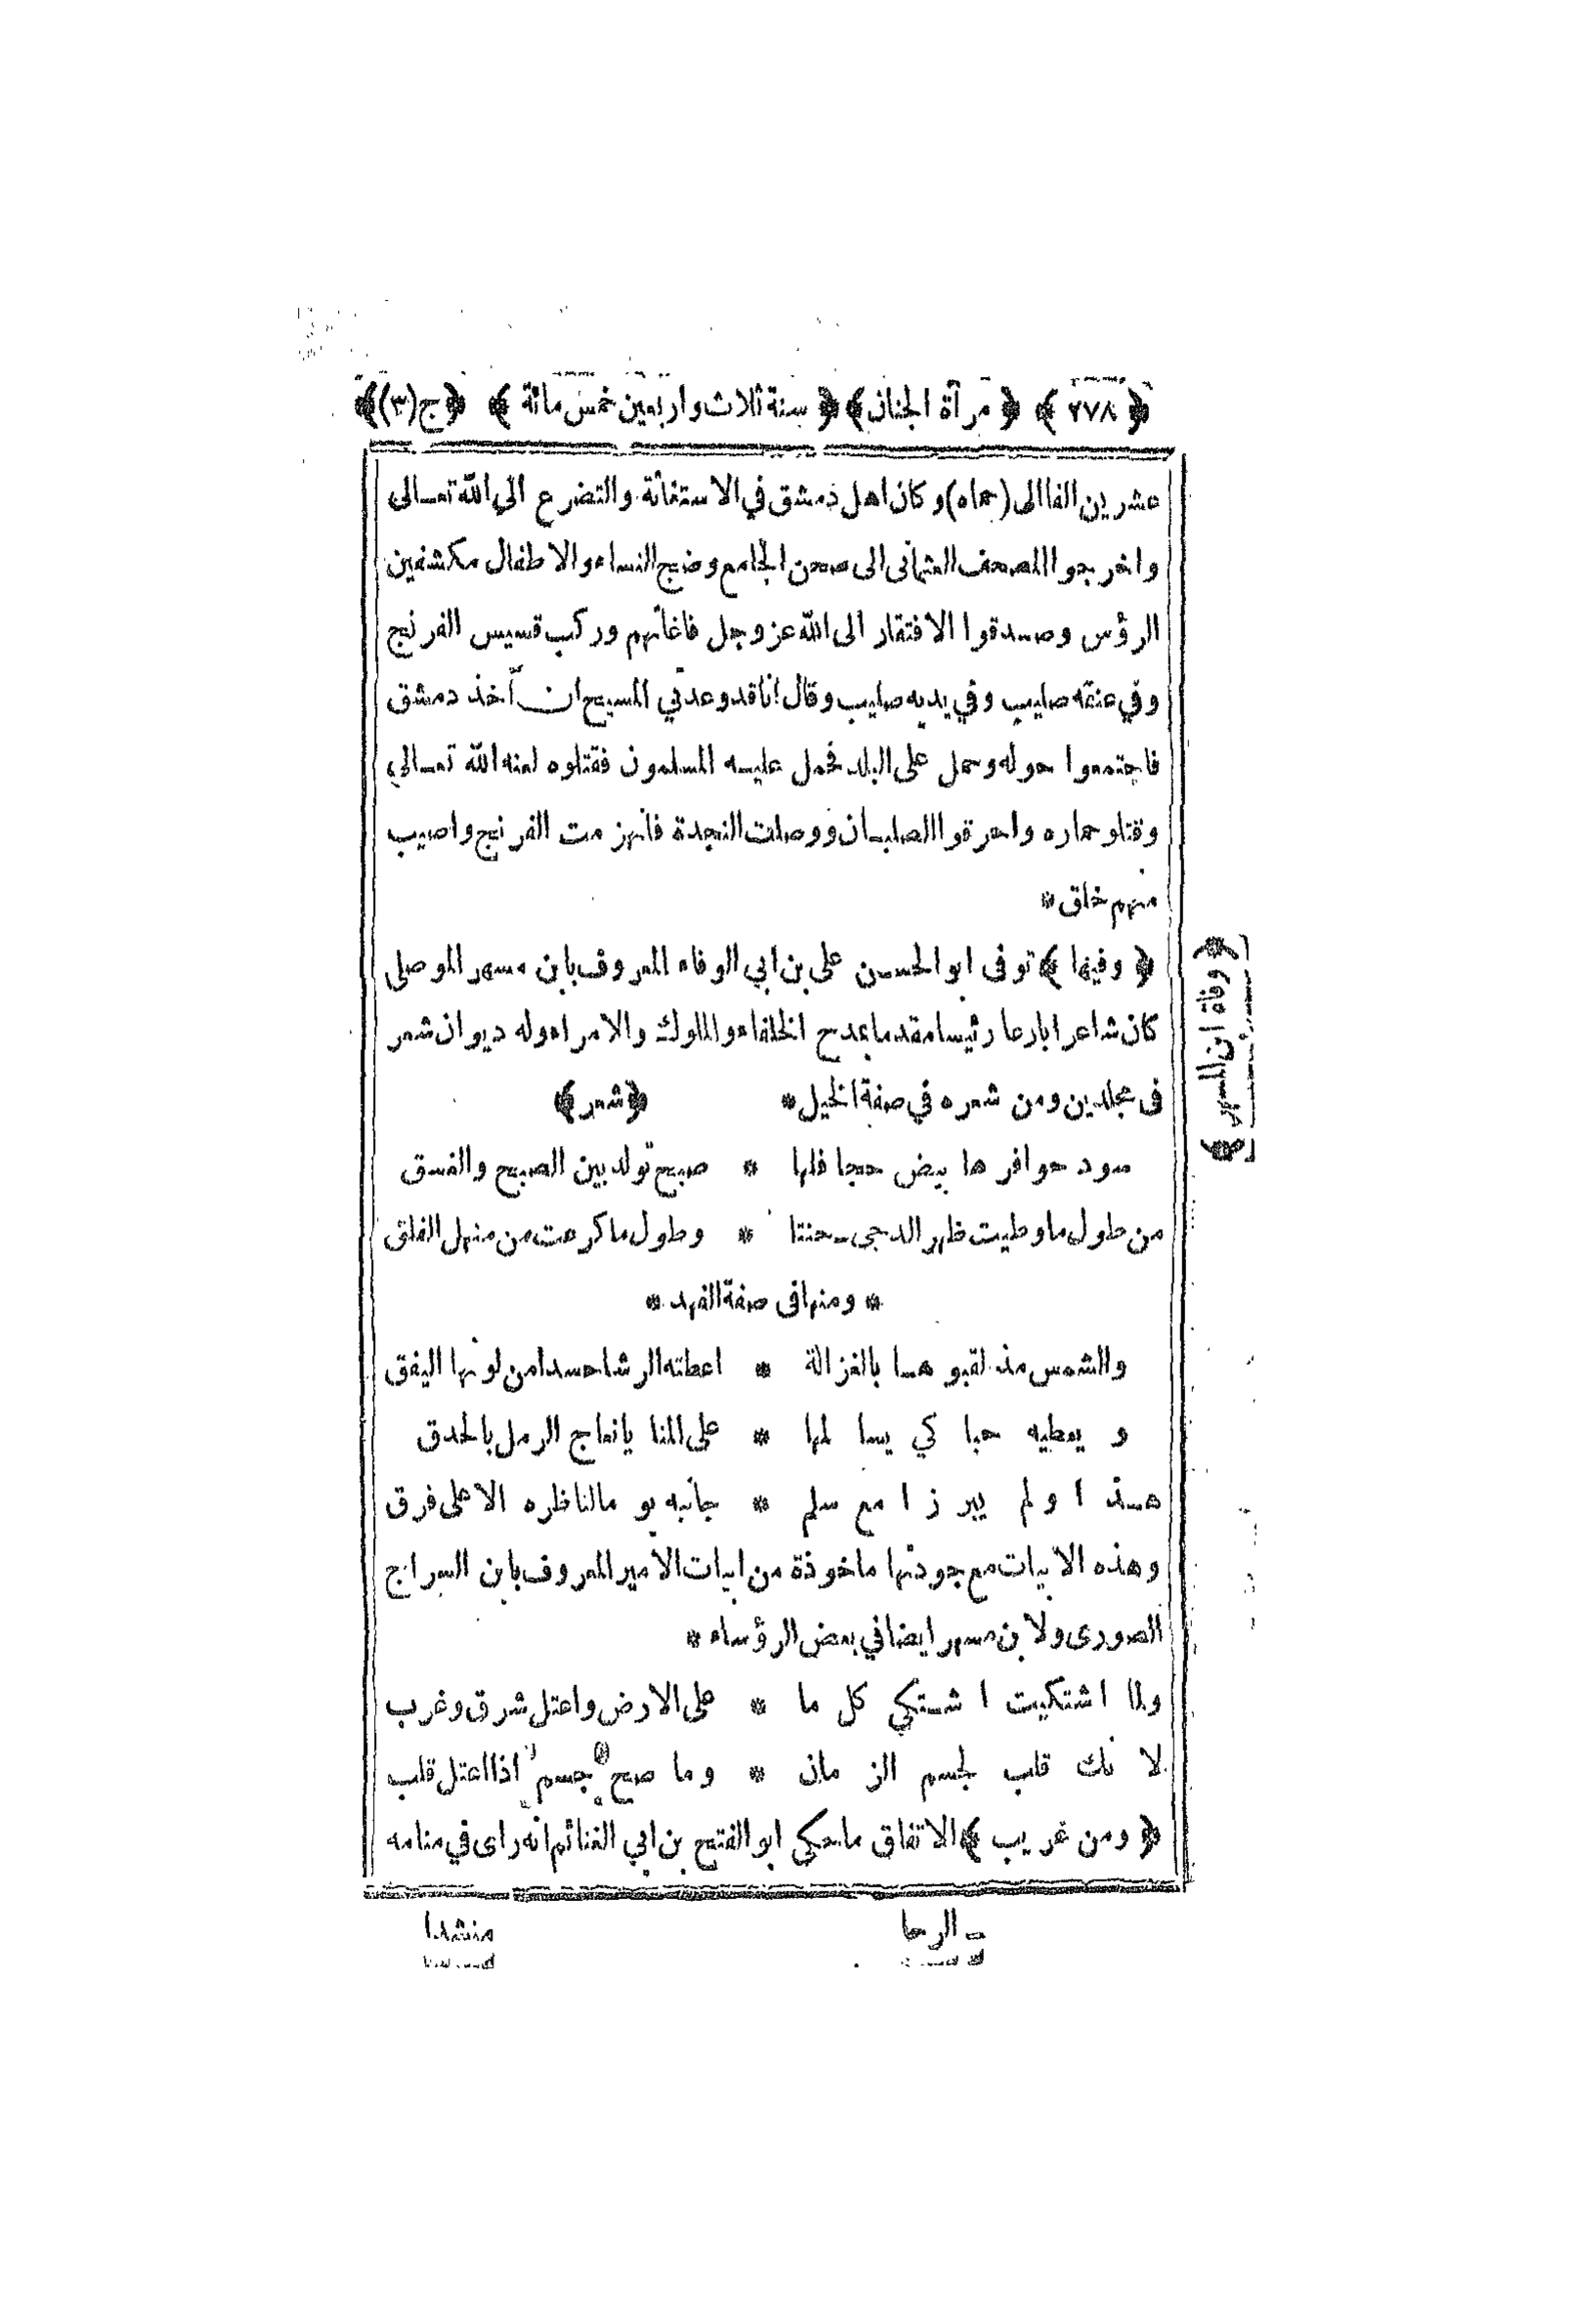 ﴿ ٢٧٨ ﴾ ﴿ مرآة الجنان ﴾ ﴿ سنة ثلاث واربعين خمس مائة ﴾ ﴿ ج (٣) ﴾
عشرين الفا الى (حماه) وكان اهل دمشق في الاستغاثة والتضرع الى الله تعالى
واخرجوا المصحف العثمانى الى صحن الجامع وضج النساء والاطفال مكشفين
الرؤس وصدقوا الافتقار الى الله عز وجل فاغاثهم وركب قسيس الفرنج
وفي عنقه صليب وفي يديه صليب وقال انا قد وعدني المسيح ان آخذ دمشق
فاجتمعوا حوله وحمل على البلد فحمل عليه المسلمون فقتلوه لعنه الله تعالى
وقتلو حماره واحرقوا الصلبان ووصلت النجدة فانهزمت الفرنج واصيب
منهم خلق *
﴿ وفيها ﴾ توفى ابو الحسن على بن ابي الوفاء المعروف بابن مسهر الموصلى
كان شاعرا بارعا رئيسا مقدما يمدح الخلفاء والملوك والامراء وله ديوان شعر
فى مجلدين ومن شعره في صفة الخيل * ﴿ شعر ﴾
سود حوافرها بيض حجافلها * صبح تولد بين الصبح والغسق
من طول ما وطيت ظهر الدجى حنتا * وطول ما كرعت من منهل الفلق
* ومنها فى صفة الفهد *
والشمس مذ لقبوها بالغزالة * اعطته الرشا حسدا من لونها اليفق
و يعطيه حبا كي يسا لمها * على المنا يا نعاج الرمل بالحدق
هذا ولم يبرزا مع سلم * جانبه يو ما لناظره الا على فرق
وهذه الابيات مع جودتها ماخوذة من ابيات الامير المعروف بابن السراج
الصورى ولابن مسهر ايضا في بعض الرؤساء *
ولما اشتكيت اشتكي كل ما * على الارض واعتل شرق وغرب
لانك قلب لجسم الزمان * وما صح جسم اذا اعتل قلب
﴿ ومن غريب ﴾ الاتفاق ما حكى ابو الفتح بن ابي الغنائم انه راى في منامه
﴿ وفاة ابن المسهر ﴾
الرحا
منشدا